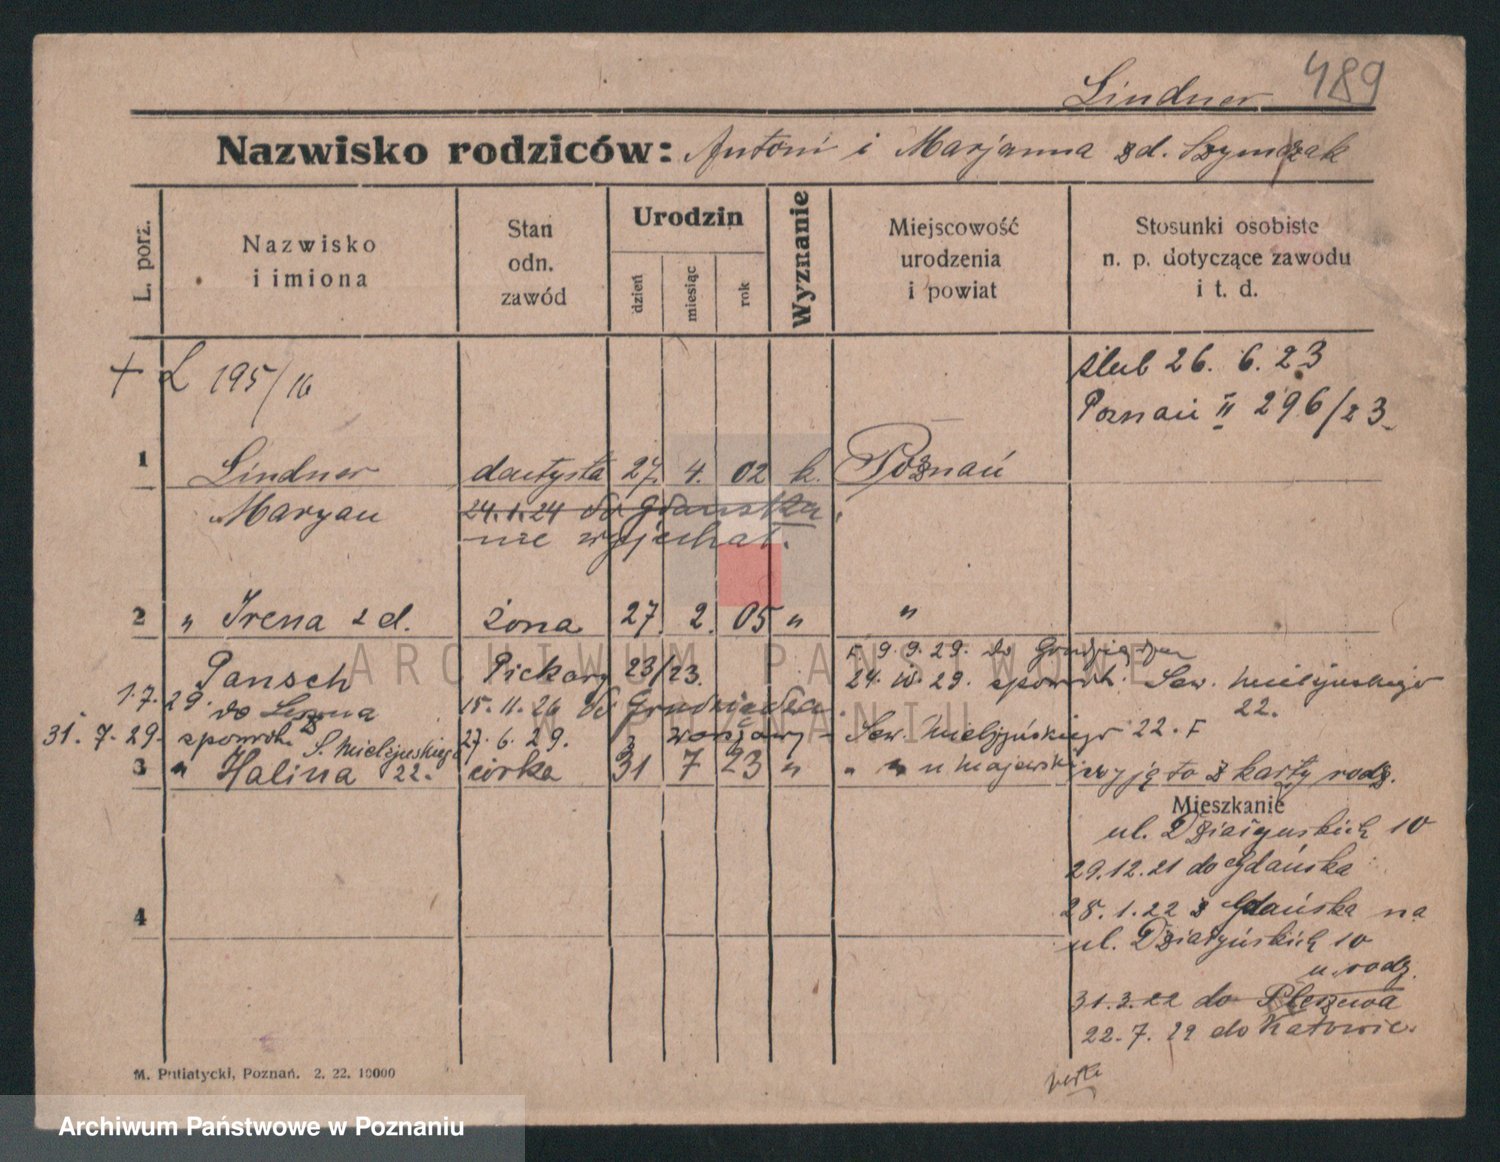 Lindner 489
Nazwisko rodziców: Antoni i Marjanna zd. Szymczak
L. porz.
Nazwisko i imiona
Stan odn. zawód
Urodzin
dzień
miesiąc
rok
Wyznanie
Miejscowość urodzenia i powiat
Stosunki osobiste n. p. dotyczące zawodu i t. d.
+ L 195/16
ślub 26. 6. 23
Poznań II 296/23
1 Lindner dentysta 27. 4. 02 k. Poznań
Maryan 24.1.24 do Gdańska
nie wyjechał.
2 " Irena zd. żona 27. 2. 05 " "
Pansch Piekary 23/23.
9. 9. 29. do Grudziądza
24. 10. 29. spowrt. Sew. Mielżyńskiego 22.
1.7.29. do Leszna
15. 11. 26 do Grudziądza
31. 7. 29. z powrot. S. Mielżyńskiego 22.
27. 6. 29. z Warszawy Sew. Mielżyńskiego 22. F
3 " Halina córka 31 7 23 " " "
wyjęto z karty rodz.
Mieszkanie
ul. Działyńskich 10
29.12.21 do Gdańska
28. 1. 22 z Gdańska na
ul. Działyńskich 10
u. rodz.
31.3.22 do Pleszewa
22. 7. 22 do Katowic.
4
verte
M. Putiatycki, Poznań. 2. 22. 10000
ARCHIWUM PAŃSTWOWE
W POZNANIU
Archiwum Państwowe w Poznaniu